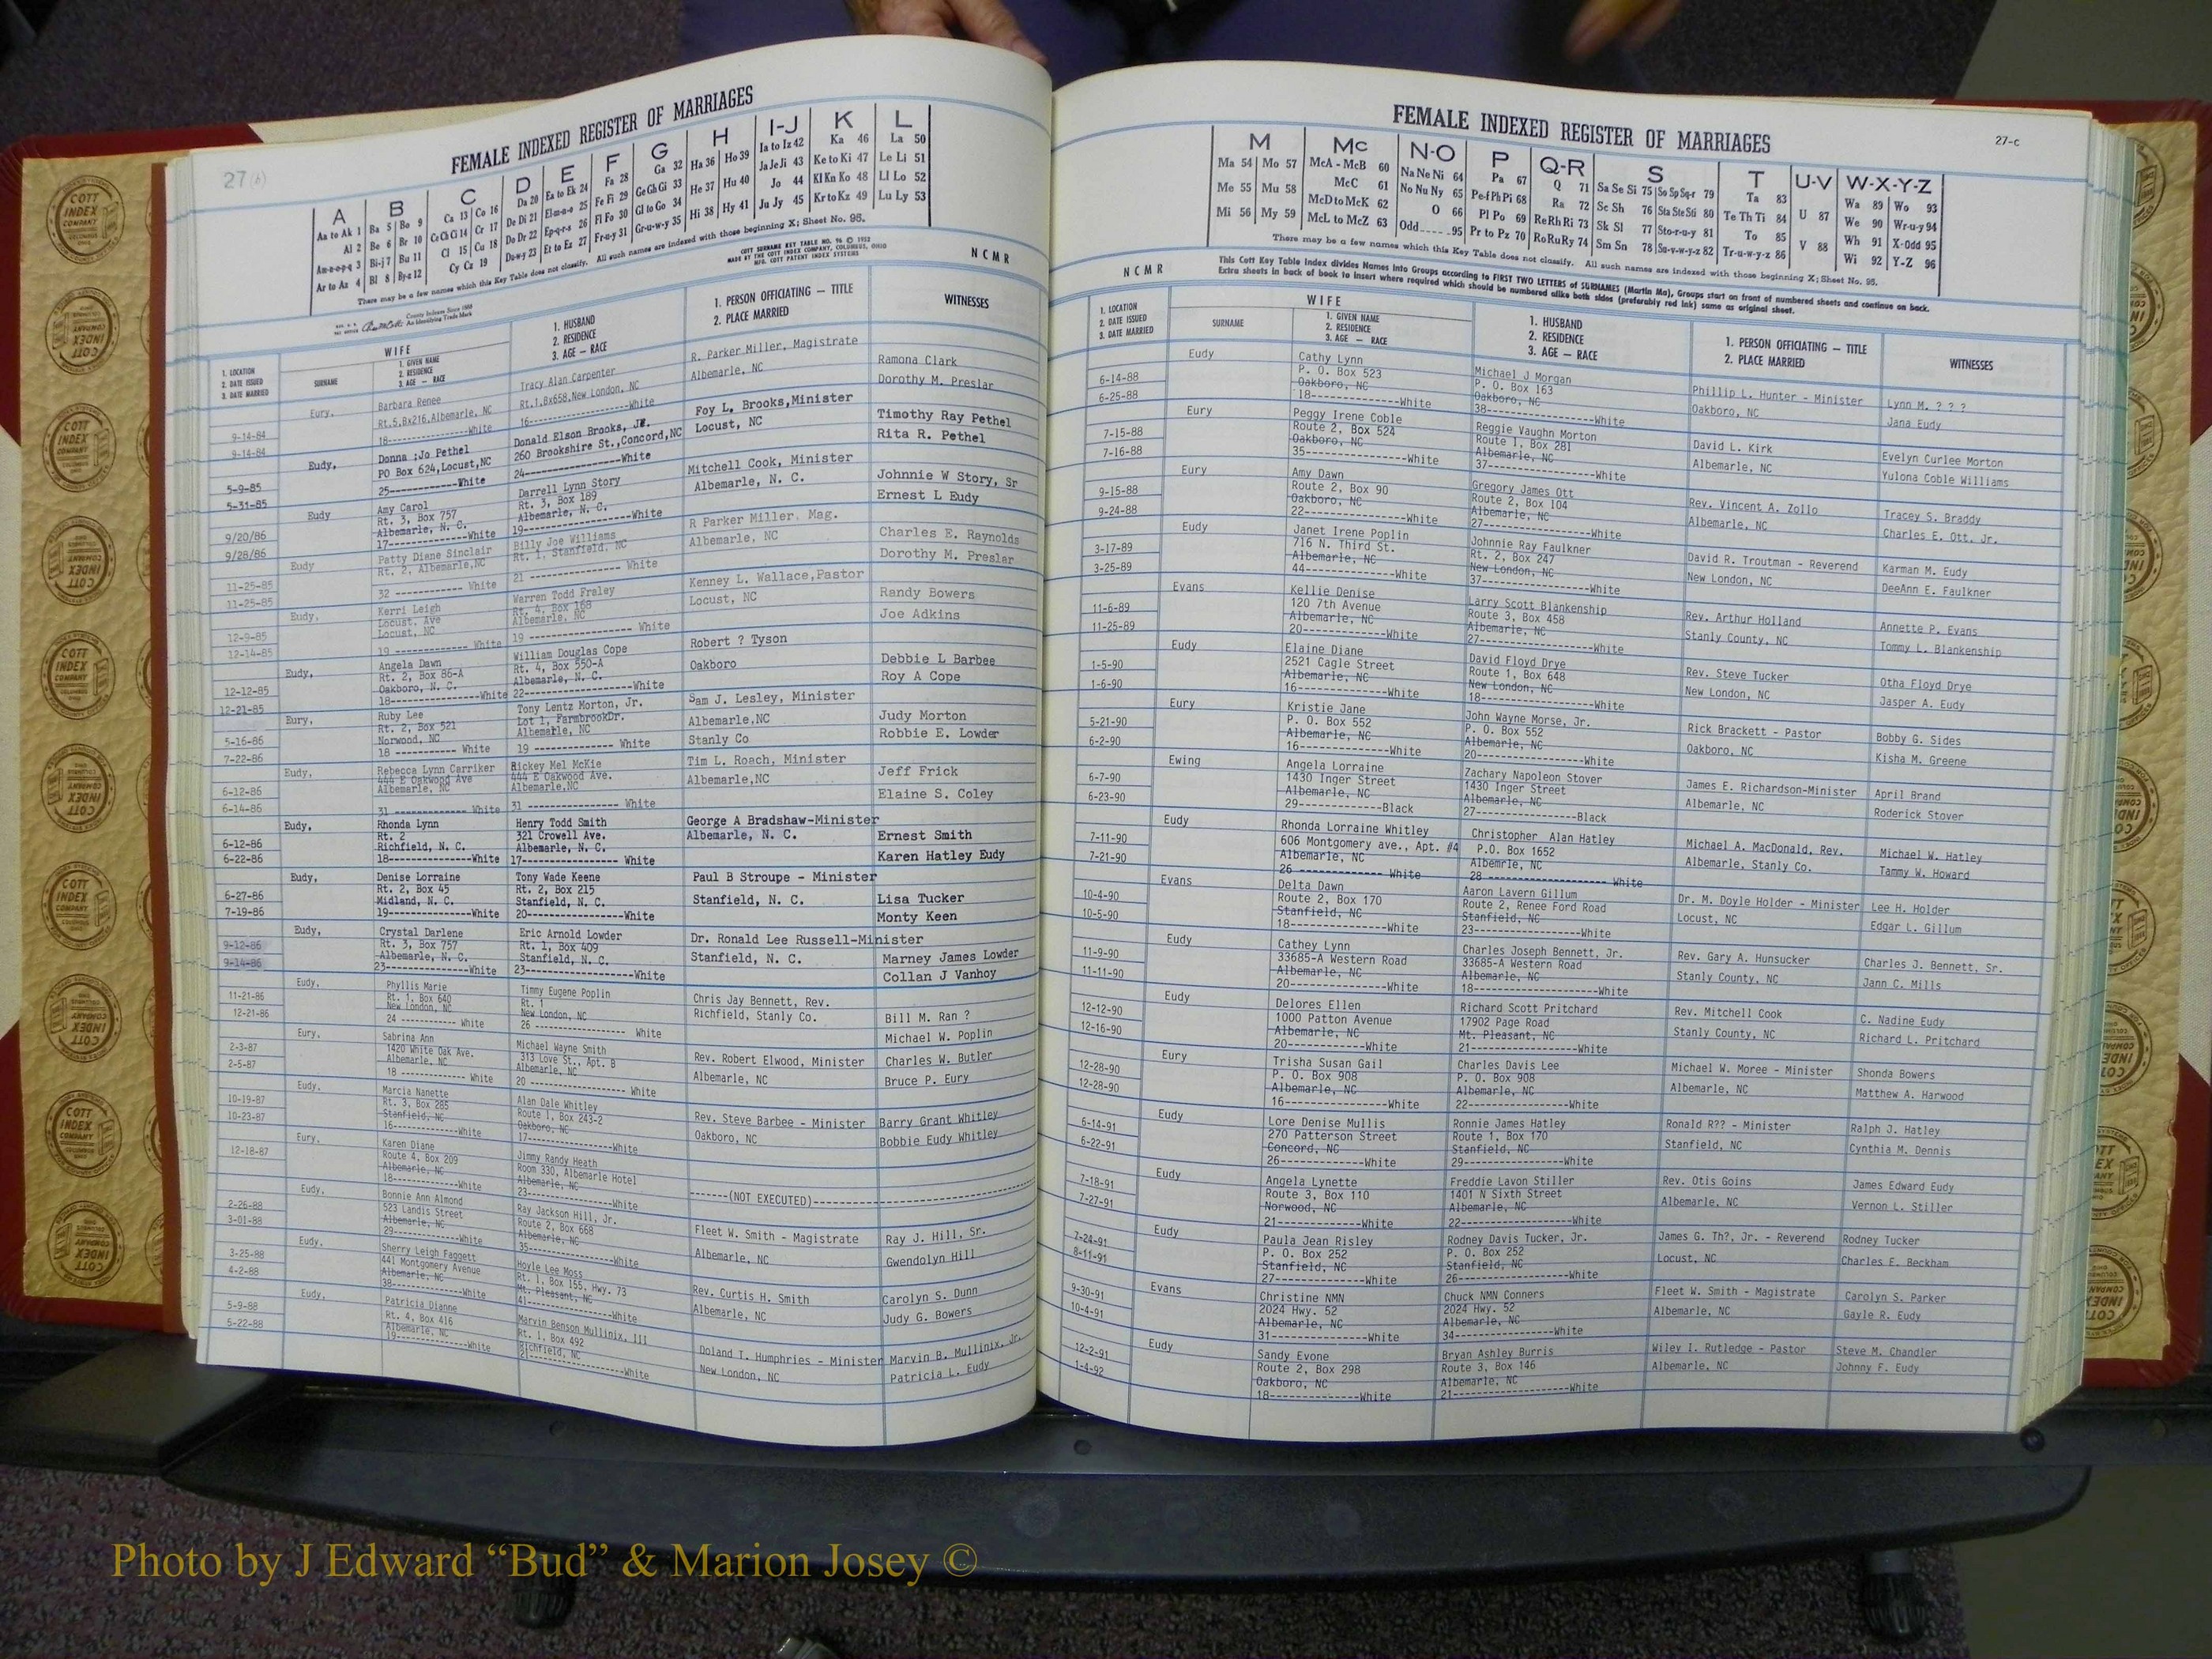 27(b)
FEMALE INDEXED REGISTER OF MARRIAGES
A B C D E F G H I-J K L
Aa to Ak 1 Ba 5 Bo 9 Ca 13 Co 16 Da 20 Ea to Ek 24 Fa 28 Ga 32 Ha 36 Ho 39 Ia to Iz 42 Ka 46 La 50
Al 2 Be 6 Br 10 Ce Ch Ci 14 Cr 17 De Di 21 El-m-n-o 25 Fe Fi 29 Ge Gh Gi 33 He 37 Hu 40 Ja Je Ji 43 Ke to Ki 47 Le Li 51
Am-n-o-p-q 3 Bi-j 7 Bu 11 Cl 15 Cu 18 Do Dr 22 Ep-q-r-s 26 Fl Fo 30 Gl to Go 34 Hi 38 Hy 41 Jo 44 Kl Kn Ko 48 Ll Lo 52
Ar to Az 4 Bl 8 By-z 12 Cy Cz 19 Du-w-y 23 Et to Ez 27 Fr-u-y 31 Gr-u-w-y 35 Ju Jy 45 Kr to Kz 49 Lu Ly 53
There may be a few names which this Key Table does not classify. All such names are indexed with those beginning X; Sheet No. 95.
COTT SURNAME KEY TABLE NO. 96 © 1952
MADE BY THE COTT INDEX COMPANY, COLUMBUS, OHIO
MFG. COTT PATENT INDEX SYSTEMS
County Indexes Since 1888
An Identifying Trade Mark
NCMR
1. LOCATION
2. DATE ISSUED
3. DATE MARRIED
WIFE
SURNAME
1. GIVEN NAME
2. RESIDENCE
3. AGE — RACE
1. HUSBAND
2. RESIDENCE
3. AGE — RACE
1. PERSON OFFICIATING — TITLE
2. PLACE MARRIED
WITNESSES
Eury, Barbara Renee Tracy Alan Carpenter R. Parker Miller, Magistrate Ramona Clark
9-14-84 Rt.5,Bx216,Albemarle, NC Rt.1,Bx658,New London, NC Albemarle, NC Dorothy M. Preslar
9-14-84 18----------------White 16----------------White
Eudy, Donna Jo Pethel Donald Elson Brooks, Jr. Foy L. Brooks,Minister Timothy Ray Pethel
5-9-85 PO Box 624,Locust,NC 260 Brookshire St.,Concord,NC Locust, NC Rita R. Pethel
5-31-85 25-----------White 24----------------White
Eudy Amy Carol Darrell Lynn Story Mitchell Cook, Minister Johnnie W Story, Sr
9/20/86 Rt. 3, Box 757 Rt. 3, Box 189 Albemarle, N. C. Ernest L Eudy
9/28/86 Albemarle, N. C. Albemarle, N. C.
17--------------White 19------------------White
Eudy Patty Diane Sinclair Billy Joe Williams R Parker Miller, Mag. Charles E. Raynolds
11-25-85 Rt. 2, Albemarle,NC Rt. 1, Stanfield, NC Albemarle, NC Dorothy M. Preslar
11-25-85 32 ---------- White 21 ---------------- White
Eudy, Kerri Leigh Warren Todd Fraley Kenney L. Wallace,Pastor Randy Bowers
12-9-85 Locust, Ave Rt. 4, Box 168 Locust, NC Joe Adkins
12-14-85 Locust, NC Albemarle, NC
19 ------------ White 19 ---------------- White
Eudy, Angela Dawn William Douglas Cope Robert ? Tyson Debbie L Barbee
12-12-85 Rt. 2, Box 86-A Rt. 4, Box 550-A Oakboro Roy A Cope
12-21-85 Oakboro, N. C. Albemarle, N. C.
18---------------White 22------------------White
Eury, Ruby Lee Tony Lentz Morton, Jr. Sam J. Lesley, Minister Judy Morton
5-16-86 Rt. 2, Box 521 Lot 1, FarmbrookDr. Albemarle,NC Robbie E. Lowder
7-22-86 Norwood, NC Albemarle, NC Stanly Co
18 ----------- White 19 -------------- White
Eudy, Rebecca Lynn Carriker Rickey Mel McKie Tim L. Roach, Minister Jeff Frick
6-12-86 444 E Oakwood Ave 444 E Oakwood Ave. Albemarle,NC Elaine S. Coley
6-14-86 Albemarle, NC Albemarle,NC
31 ------------- White 31 -------------- White
Eudy, Rhonda Lynn Henry Todd Smith George A Bradshaw-Minister
6-12-86 Rt. 2 321 Crowell Ave. Albemarle, N. C. Ernest Smith
6-22-86 Richfield, N. C. Albemarle, N. C. Karen Hatley Eudy
18--------------White 17--------------- White
Eudy, Denise Lorraine Tony Wade Keene Paul B Stroupe - Minister
6-27-86 Rt. 2, Box 45 Rt. 2, Box 215 Stanfield, N. C. Lisa Tucker
7-19-86 Midland, N. C. Stanfield, N. C. Monty Keen
19--------------White 20---------------White
Eudy, Crystal Darlene Eric Arnold Lowder Dr. Ronald Lee Russell-Minister
9-12-86 Rt. 3, Box 757 Rt. 1, Box 409 Stanfield, N. C. Marney James Lowder
9-14-86 Albemarle, N. C. Stanfield, N. C. Collan J Vanhoy
23--------------White 23----------------White
Eudy, Phyllis Marie Timmy Eugene Poplin Chris Jay Bennett, Rev.
11-21-86 Rt. 1, Box 640 Rt. 1 Richfield, Stanly Co. Bill M. Ran ?
12-21-86 New London, NC New London, NC Michael W. Poplin
24 ------------ White 26 ---------------- White
Eury, Sabrina Ann Michael Wayne Smith Rev. Robert Elwood, Minister Charles W. Butler
2-3-87 1420 White Oak Ave. 313 Love St., Apt. B Albemarle, NC Bruce P. Eury
2-5-87 Albemarle, NC Albemarle, NC
18 -------------- White 20 ---------------- White
Eudy, Marcia Nanette Alan Dale Whitley Rev. Steve Barbee - Minister Barry Grant Whitley
10-19-87 Rt. 3, Box 285 Route 1, Box 243-2 Oakboro, NC Bobbie Eudy Whitley
10-23-87 Stanfield, NC Oakboro, NC
16-------------White 17---------------White
Eury, Karen Diane Jimmy Randy Heath
12-18-87 Route 4, Box 209 Room 330, Albemarle Hotel
Albemarle, NC Albemarle, NC
18-------------White 23---------------White ------(NOT EXECUTED)------
Eudy, Bonnie Ann Almond Ray Jackson Hill, Jr. Fleet W. Smith - Magistrate Ray J. Hill, Sr.
2-26-88 523 Landis Street Route 2, Box 668 Albemarle, NC Gwendolyn Hill
3-01-88 Albemarle, NC Albemarle, NC
29-------------White 35---------------White
Eudy, Sherry Leigh Faggett Hoyle Lee Moss Rev. Curtis H. Smith Carolyn S. Dunn
3-25-88 441 Montgomery Avenue Rt. 1, Box 155, Hwy. 73 Albemarle, NC Judy G. Bowers
4-2-88 Albemarle, NC Mt. Pleasant, NC
38-------------White 41---------------White
Eudy, Patricia Dianne Marvin Benson Mullinix, III Doland T. Humphries - Minister Marvin B. Mullinix, Jr.
5-9-88 Rt. 4, Box 416 Rt. 1, Box 492 New London, NC Patricia L. Eudy
5-22-88 Albemarle, NC Richfield, NC
19-------------White 21---------------White
27-c
FEMALE INDEXED REGISTER OF MARRIAGES
M Mc N-O P Q-R S T U-V W-X-Y-Z
Ma 54 Mo 57 McA - McB 60 Na Ne Ni 64 Pa 67 Q 71 Sa Se Si 75 So Sp Sq-r 79 Ta 83 Wa 89 Wo 93
Me 55 Mu 58 McC 61 No Nu Ny 65 Pe-f Ph Pi 68 Ra 72 Sc Sh 76 Sta Ste Sti 80 Te Th Ti 84 U 87 We 90 Wr-u-y 94
Mi 56 My 59 McD to McK 62 O 66 Pl Po 69 Re Rh Ri 73 Sk Sl 77 Sto-r-u-y 81 To 85 Wh 91 X-Odd 95
McL to McZ 63 Odd 95 Pr to Pz 70 Ro Ru Ry 74 Sm Sn 78 Su-v-w-y-z 82 Tr-u-w-y-z 86 V 88 Wi 92 Y-Z 96
There may be a few names which this Key Table does not classify. All such names are indexed with those beginning X; Sheet No. 95.
This Cott Key Table Index divides Names into Groups according to FIRST TWO LETTERS of SURNAMES (Martin Ma), Groups start on front of numbered sheets and continue on back.
Extra sheets in back of book to insert where required which should be numbered alike both sides (preferably red ink) same as original sheet.
NCMR
1. LOCATION
2. DATE ISSUED
3. DATE MARRIED
WIFE
SURNAME
1. GIVEN NAME
2. RESIDENCE
3. AGE — RACE
1. HUSBAND
2. RESIDENCE
3. AGE — RACE
1. PERSON OFFICIATING — TITLE
2. PLACE MARRIED
WITNESSES
Eudy Cathy Lynn Michael J Morgan Phillip L. Hunter - Minister Lynn M. ? ? ?
6-14-88 P. O. Box 523 P. O. Box 163 Oakboro, NC Jana Eudy
6-25-88 Oakboro, NC Oakboro, NC
18--------------White 38----------------White
Eury Peggy Irene Coble Reggie Vaughn Morton David L. Kirk Evelyn Curlee Morton
7-15-88 Route 2, Box 524 Route 1, Box 281 Albemarle, NC Yulona Coble Williams
7-16-88 Oakboro, NC Albemarle, NC
35--------------White 37----------------White
Eury Amy Dawn Gregory James Ott Rev. Vincent A. Zollo Tracey S. Braddy
9-15-88 Route 2, Box 90 Route 2, Box 104 Albemarle, NC Charles E. Ott, Jr.
9-24-88 Oakboro, NC Albemarle, NC
22--------------White 27----------------White
Eudy Janet Irene Poplin Johnnie Ray Faulkner David R. Troutman - Reverend Karman M. Eudy
3-17-89 716 N. Third St. Rt. 2, Box 247 New London, NC DeeAnn E. Faulkner
3-25-89 Albemarle, NC New London, NC
44--------------White 37----------------White
Evans Kellie Denise Larry Scott Blankenship Rev. Arthur Holland Annette P. Evans
11-6-89 120 7th Avenue Route 3, Box 458 Stanly County, NC Tommy L. Blankenship
11-25-89 Albemarle, NC Albemarle, NC
20--------------White 27----------------White
Eudy Elaine Diane David Floyd Drye Rev. Steve Tucker Otha Floyd Drye
1-5-90 2521 Cagle Street Route 1, Box 648 New London, NC Jasper A. Eudy
1-6-90 Albemarle, NC New London, NC
16--------------White 18----------------White
Eury Kristie Jane John Wayne Morse, Jr. Rick Brackett - Pastor Bobby G. Sides
5-21-90 P. O. Box 552 P. O. Box 552 Oakboro, NC Kisha M. Greene
6-2-90 Albemarle, NC Albemarle, NC
16--------------White 20----------------White
Ewing Angela Lorraine Zachary Napoleon Stover James E. Richardson-Minister April Brand
6-7-90 1430 Inger Street 1430 Inger Street Albemarle, NC Roderick Stover
6-23-90 Albemarle, NC Albemarle, NC
29-------------Black 27----------------Black
Eudy Rhonda Lorraine Whitley Christopher Alan Hatley Michael A. MacDonald, Rev. Michael W. Hatley
7-11-90 606 Montgomery ave., Apt. #4 P.O. Box 1652 Albemarle, Stanly Co. Tammy W. Howard
7-21-90 Albemarle, NC Albemrle, NC
26 -------------- White 28 ---------------- White
Evans Delta Dawn Aaron Lavern Gillum Dr. M. Doyle Holder - Minister Lee H. Holder
10-4-90 Route 2, Box 170 Route 2, Renee Ford Road Locust, NC Edgar L. Gillum
10-5-90 Stanfield, NC Stanfield, NC
18--------------White 23----------------White
Eudy Cathey Lynn Charles Joseph Bennett, Jr. Rev. Gary A. Hunsucker Charles J. Bennett, Sr.
11-9-90 33685-A Western Road 33685-A Western Road Stanly County, NC Jann C. Mills
11-11-90 Albemarle, NC Albemarle, NC
20--------------White 18----------------White
Eudy Delores Ellen Richard Scott Pritchard Rev. Mitchell Cook C. Nadine Eudy
12-12-90 1000 Patton Avenue 17902 Page Road Stanly County, NC Richard L. Pritchard
12-16-90 Albemarle, NC Mt. Pleasant, NC
20--------------White 21----------------White
Eury Trisha Susan Gail Charles Davis Lee Michael W. Moree - Minister Shonda Bowers
12-28-90 P. O. Box 908 P. O. Box 908 Albemarle, NC Matthew A. Harwood
12-28-90 Albemarle, NC Albemarle, NC
16--------------White 22----------------White
Eudy Lore Denise Mullis Ronnie James Hatley Ronald R?? - Minister Ralph J. Hatley
6-14-91 270 Patterson Street Route 1, Box 170 Stanfield, NC Cynthia M. Dennis
6-22-91 Concord, NC Stanfield, NC
26--------------White 29----------------White
Eudy Angela Lynette Freddie Lavon Stiller Rev. Otis Goins James Edward Eudy
7-18-91 Route 3, Box 110 1401 N Sixth Street Albemarle, NC Vernon L. Stiller
7-27-91 Norwood, NC Albemarle, NC
21--------------White 22----------------White
Eudy Paula Jean Risley Rodney Davis Tucker, Jr. James G. Th?, Jr. - Reverend Rodney Tucker
7-24-91 P. O. Box 252 P. O. Box 252 Locust, NC Charles E. Beckham
8-11-91 Stanfield, NC Stanfield, NC
27--------------White 26----------------White
Evans Christine NMN Chuck NMN Conners Fleet W. Smith - Magistrate Carolyn S. Parker
9-30-91 2024 Hwy. 52 2024 Hwy. 52 Albemarle, NC Gayle R. Eudy
10-4-91 Albemarle, NC Albemarle, NC
31--------------White 34----------------White
Eudy Sandy Evone Bryan Ashley Burris Wiley I. Rutledge - Pastor Steve M. Chandler
12-2-91 Route 2, Box 298 Route 3, Box 146 Albemarle, NC Johnny F. Eudy
1-4-92 Oakboro, NC Albemarle, NC
18--------------White 21----------------White
COTT INDEX COMPANY
Photo by J Edward “Bud” & Marion Josey ©